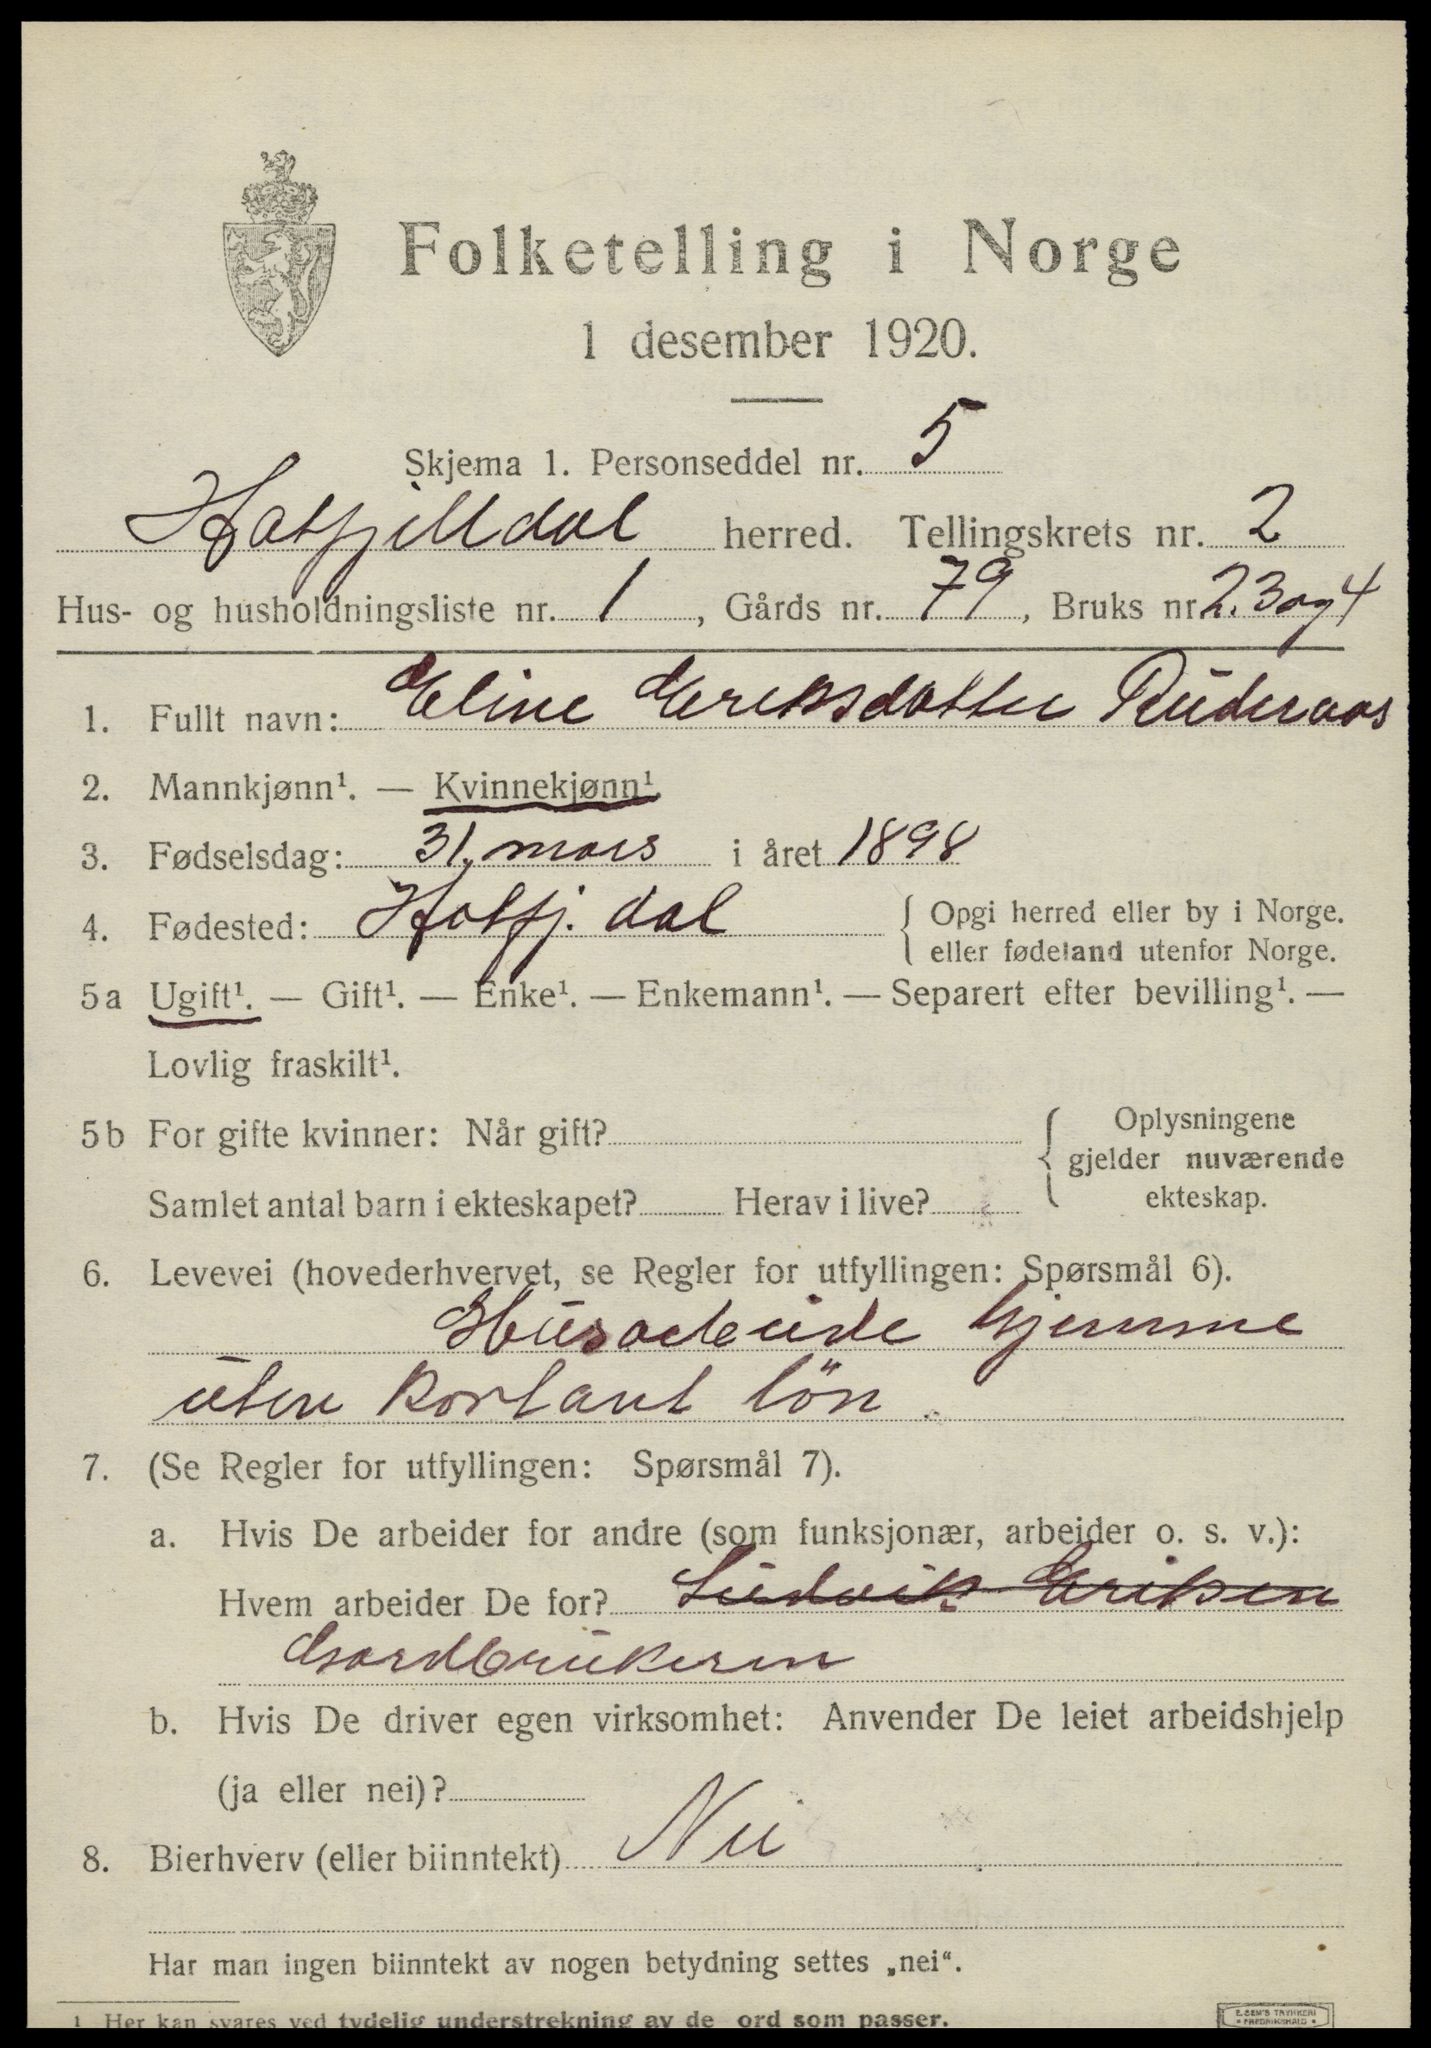 Folketelling i Norge
1 desember 1920.
Skjema 1. Personseddel nr. 5
Hatfjelldal herred. Tellingskrets nr. 2
Hus- og husholdningsliste nr. 1, Gårds nr. 79, Bruks nr. 2.3 og 4
1. Fullt navn: Eline Eriksdatter
2. Mannkjønn¹. — Kvinnekjønn¹.
3. Fødselsdag: 31. mars i året 1898
4. Fødested: Hatfj. dal { Opgi herred eller by i Norge.
eller fødeland utenfor Norge.
5a Ugift¹. — Gift¹. — Enke¹. — Enkemann¹. — Separert efter bevilling¹. —
Lovlig fraskilt¹.
5b For gifte kvinner: Når gift? { Oplysningene
gjelder nuværende
Samlet antal barn i ekteskapet? Herav i live? ekteskap.
6. Levevei (hovederhvervet, se Regler for utfyllingen: Spørsmål 6).
Husarbeide hjemme
uten kontant løn.
7. (Se Regler for utfyllingen: Spørsmål 7).
a. Hvis De arbeider for andre (som funksjonær, arbeider o. s. v.):
Hvem arbeider De for? Ludvik Eriksen
Gardbrukeren
b. Hvis De driver egen virksomhet: Anvender De leiet arbeidshjelp
(ja eller nei)?
8. Bierhverv (eller biinntekt) Nei
Har man ingen biinntekt av nogen betydning settes „nei“.
¹ Her kan svares ved tydelig understrekning av de ord som passer.
E. SEM'S TRYKKERI
FREDRIKSHALD